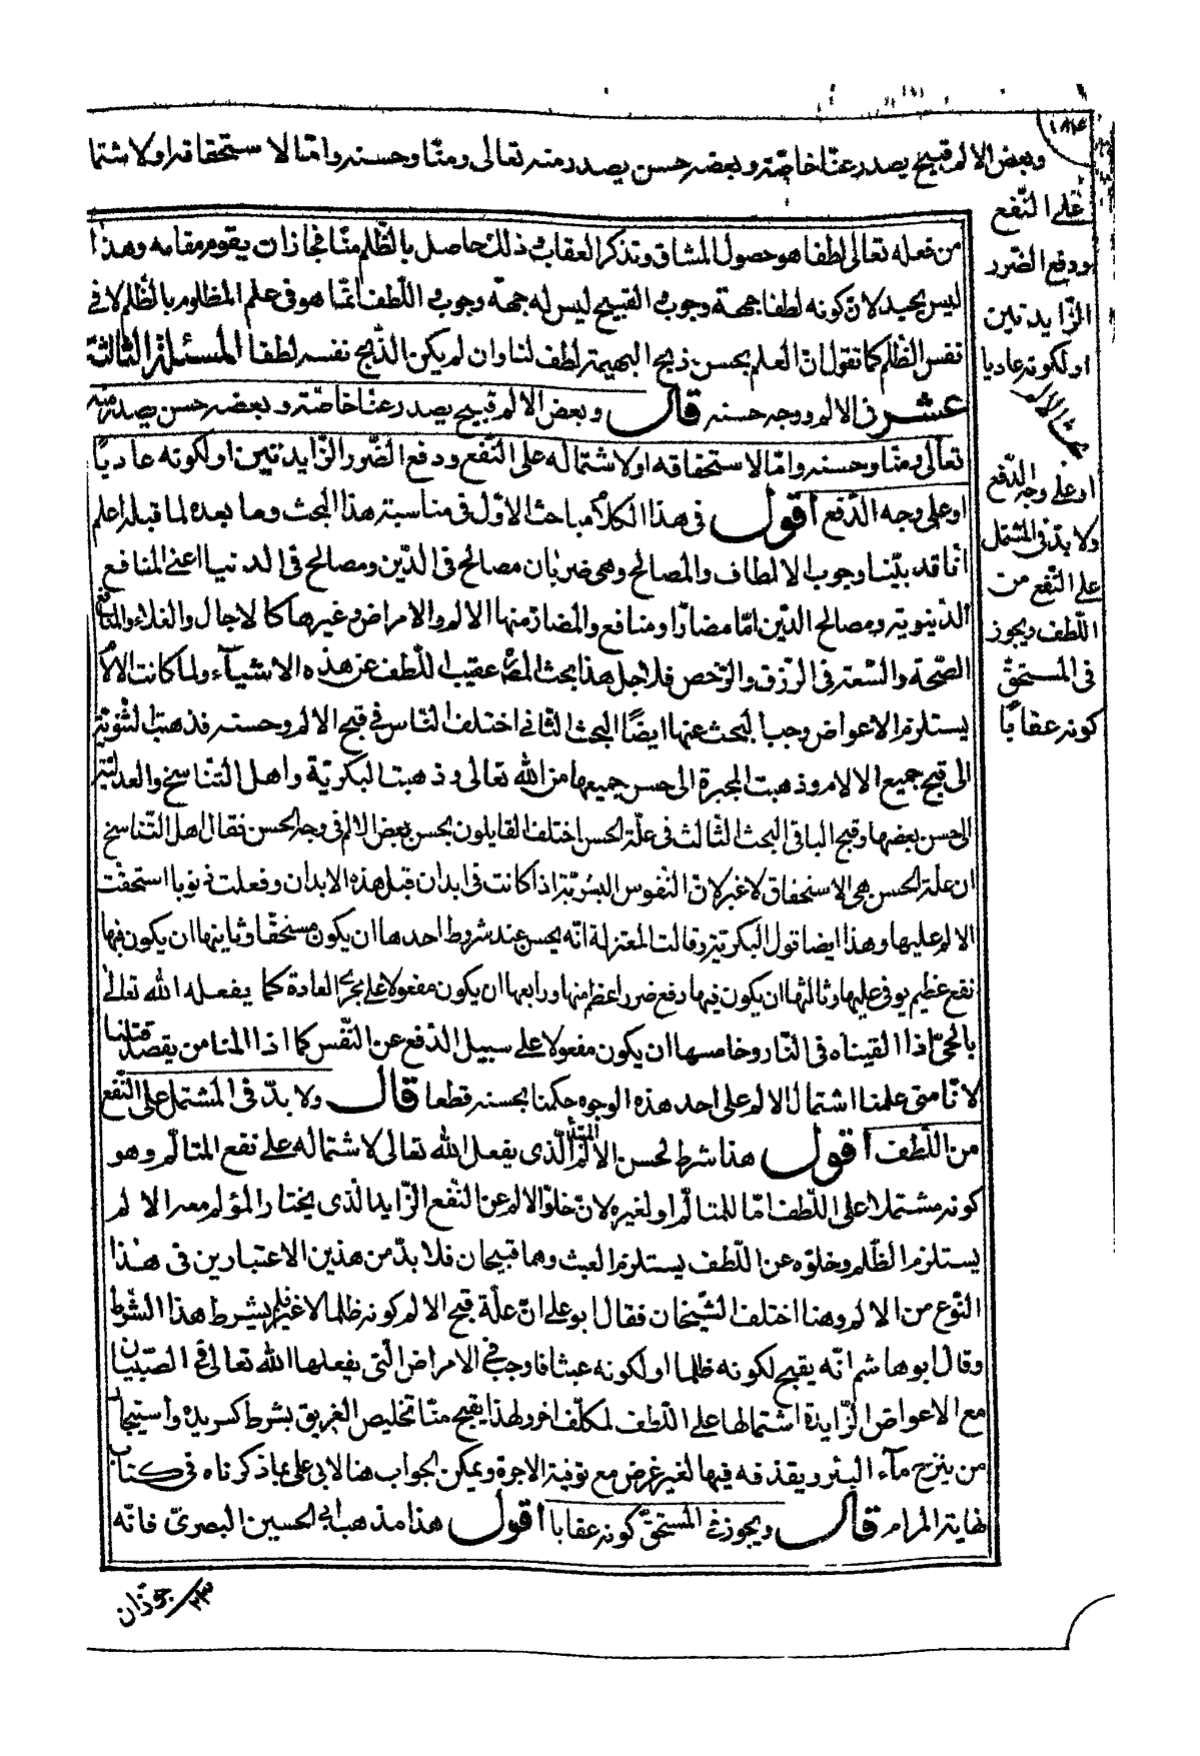 ١٨٤
وبعض الالم قبيح يصدر عنّا خاصّة وبعضه حسن يصدر منه تعالى ومنّا وحسنه وامّا لاستحقاقه اولاشتما
على النّفع
ودفع الضّرر
الزّايدتين
او لكونه عاديا
بحث الالم
او على وجه الدّفع
ولا بدّ فى المشتمل
على النّفع من
اللّطف ويجوز
فى المستحقّ
كونه عقابًا
من فعله تعالى لطفا هو حصول المشاق وتذكر العقاب وذلك حاصل بالظّلم منّا فجاز ان يقوم مقامه وهذا
ليس بجيد لان كونه لطفا جهة وجوب والقبيح ليس له جهة وجوب واللّطف انّما هو فى علم المظلوم بالظّلم لا فى
نفس الظّلم كما نقول انّ العلم بحسن ذبح البهيمة لطف لنا وان لم يكن الذّبح نفسه لطفا المسئلة الثالثة
عشر فى الالم ووجه حسنه قال وبعض الالم قبيح يصدر عنّا خاصّة وبعضه حسن يصدر منه
تعالى ومنّا وحسنه وامّا لاستحقاقه اولاشتماله على النّفع ودفع الضّرر الزّايدتين او لكونه عاديًا
او على وجه الدّفع اقول فى هذا الكلام مباحث الاوّل فى مناسبة هذا البحث وما بعده لما قبله اعلم
انّا قد بيّنا وجوب الالطاف والمصالح وهى ضربان مصالح فى الدّين ومصالح فى الدنيا اعنى المنافع
الدّنيوية ومصالح الدّين امّا مضارّ او منافع والمضار منها الالم والامراض وغيرها كالاجال والغلاء والمنافع
الصّحة والسّعة فى الرّزق والرّخص فلاجل هذا بحث المصّ عقيب اللّطف عن هذه الاشيآء ولما كانت الالام
يستلزم الاعواض وجب البحث عنها ايضًا البحث الثانى اختلف النّاس فى قبح الالم وحسنه فذهبت الثنوية
الى قبح جميع الالام وذهبت المجبرة الى حسن جميعها من الله تعالى وذهبت البكريّة واهل التّناسخ والعدليّة
الى حسن بعضها وقبح الباقى البحث الثّالث فى علّة الحسن اختلف القايلون بحسن بعض الالم فى وجه الحسن فقال اهل التّناسخ
ان علّة الحسن هى الاستحقاق لا غير لانّ النّفوس البشريّة اذا كانت فى ابدان قبل هذه الابدان وفعلت ذنوبا استحقّت
الالم عليها وهذا ايضا قول البكريّة وقالت المعتزلة انّه يحسن عند شروط احدها ان يكون مستحقّا وثانيها ان يكون فيها
نفع عظيم يوفى عليها وثالثها ان يكون فيها دفع ضرر اعظم منها ورابعها ان يكون مفعولا على مجرى العادة كما يفعله الله تعالى
بالحىّ اذا القيناه فى النّار وخامسها ان يكون مفعولا على سبيل الدّفع عن النّفس كما اذا المنا من يقصد قتلنا
لانّا متى علمنا اشتمال الالم على احد هذه الوجوه حكمنا بحسنه قطعا قال ولا بدّ فى المشتمل على النّفع
من اللّطف اقول هذا شرط لحسن الالم المبتدأ الّذى يفعل الله تعالى لاشتماله على نفع المتالّم وهو
كونه مشتملا على اللّطف امّا للمتالّم او لغيره لانّ خلوّ الالم عن النّفع الزّايد الذى يختار المؤلم معه الالم
يستلزم الظّلم وخلوّه عن اللّطف يستلزم العبث وهما قبيحان فلا بدّ من هذين الاعتبارين فى هذا
النّوع من الالم وهنا اختلف الشّيخان فقال ابو على انّ علّة قبح الالم كونه ظلما لا غير فلم يشرط هذا الشّرط
وقال ابو هاشم انّه يقبح لكونه ظلما او لكونه عبثا فاوجب فى الامراض الّتى يفعلها الله تعالى فى الصّبيان
مع الاعواض الزّايدة اشتمالها على اللّطف لمكلّف اخر ولهذا يقبح منّا تخليص الغريق بشرط كسر يده واستيجار
من ينزح مآء البئر ويقذفه فيها لغير غرض مع توفية الاجرة ويمكن الجواب هنا لابى على بما ذكرناه فى كتاب
نهاية المرام قال ويجوز فى المستحقّ كونه عقابا اقول هذا مذهب ابى الحسين البصرىّ فانّه